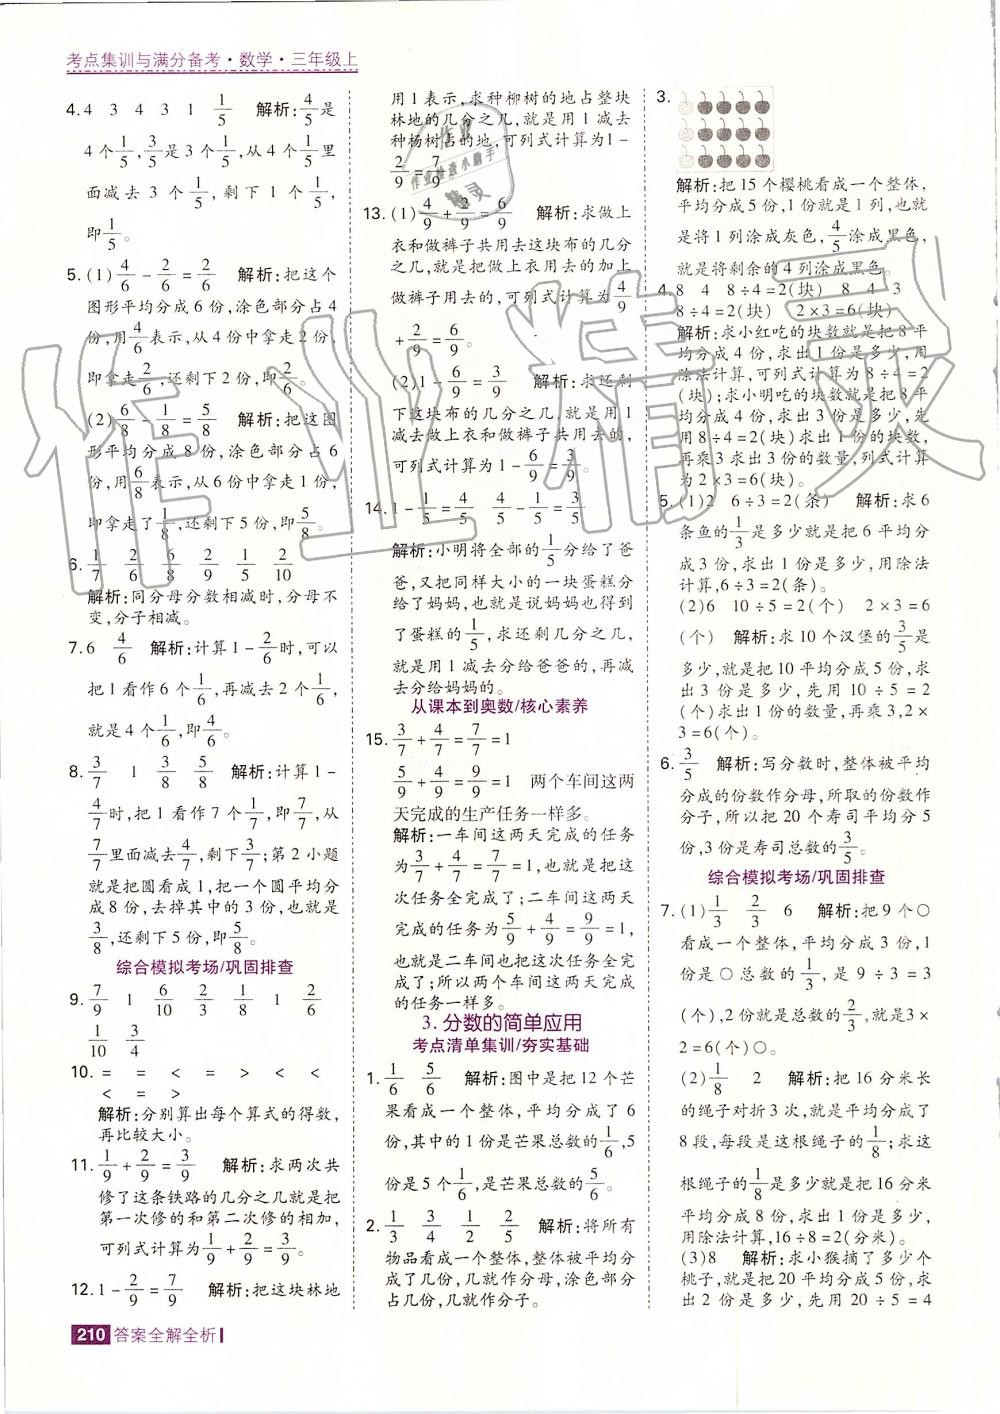 考点集训与满分备考·数学·三年级上
4. 4 3 4 3 1 1/5 解析:4/5是
4个1/5,3/5是3个1/5,从4个1/5里
面减去3个1/5,剩下1个1/5,
即1/5。
5. (1)4/6-2/6=2/6 解析:把这个
图形平均分成6份,涂色部分占4
份,用4/6表示,从4份中拿走2份,
即拿走2/6,还剩下2份,即2/6。
(2)6/8-1/8=5/8 解析:把这图
形平均分成8份,涂色部分占6
份,用6/8表示,从6份中拿走1份,
即拿走了1/8,还剩下5份,即5/8。
6. 1/7 2/8 6/8 2/9 1/5 2/10
解析:同分母分数相减时,分母不
变,分子相减。
7. 6 4/6 解析:计算1-2/6时,可以
把1看作6个1/6,再减去2个1/6,
就是4个1/6,即4/6。
8. 3/7 1 3/8 5/8 解析:计算1-
4/7时,把1看作7个1/7,即7/7,从
7/7里面减去4/7,剩3/7;第2小题
就是把圆看成1,把一个圆平均分
成8份,去掉其中的3份,也就是
3/8,还剩下5份,即5/8。
综合模拟考场/巩固排查
9. 7/9 1 6/10 2/3 1/8 1 2/6
1/10 3/4
10. = < = > < <
< = >
解析:分别算出每个算式的得数,
再比较大小。
11. 1/9+2/9=3/9 解析:求两次共
修了这条铁路的几分之几就是把
第一次修的和第二次修的相加,
可列式计算为1/9+2/9=3/9。
12. 1-2/9=7/9 解析:把这块林地
用1表示,求种柳树的地占整块
林地的几分之几,就是用1减去
种杨树占的地,可列式计算为1-
2/9=7/9。
13. (1)4/9+2/9=6/9 解析:求做上
衣和做裤子共用去这块布的几分
之几,就是把做上衣用去的加上
做裤子用去的,可列式计算为4/9
+2/9=6/9。
(2)1-6/9=3/9 解析:求还剩
下这块布的几分之几,就是用1
减去做上衣和做裤子共用去的,
可列式计算为1-6/9=3/9。
14. 1-1/5=4/5 4/5-1/5=3/5
解析:小明将全部的1/5分给了爸
爸,又把同样大小的一块蛋糕分
给了妈妈,也就是说妈妈也得到
了蛋糕的1/5,求还剩几分之几,
就是用1减去分给爸爸的,再减
去分给妈妈的。
从课本到奥数/核心素养
15. 3/7+4/7=7/7=1
5/9+4/9=9/9=1 两个车间这两
天完成的生产任务一样多。
解析:一车间这两天完成的任务
为3/7+4/7=7/7=1,也就是把这次
任务全部完成了;二车间这两天
完成的任务为5/9+4/9=9/9=1,
也就是二车间也把这次任务全完
成了;所以两个车间这两天完成
的任务一样多。
3. 分数的简单应用
考点清单集训/夯实基础
1. 1/6 5/6 解析:图中是把12个芒
果看成一个整体,平均分成了6
份,其中的1份是芒果总数的1/6,5
份是5个1/6,是芒果总数的5/6。
2. 1/3 3/4 1/2 2/5 解析:将所有
物品看成一个整体,整体被平均分
成了几份,几就作分母,涂色部分
占几份,几就作分子。
3.
解析:把15个樱桃看成一个整体,
平均分成5份,1份就是1列,也就
是将1列涂成灰色,4/5涂成黑色,
就是将剩余的4列涂成黑色。
4. 8 4 8÷4=2(块) 8 4 3
8÷4=2(块) 2×3=6(块)
解析:求小红吃的块数就是把8平
均分成4份,求出1份是多少,用
除法计算,可列式计算为8÷4=2
(块);求小明吃的块数就是把8平
均分成4份,求出3份是多少,先
用8÷4=2(块)求出1份的块数,
再乘3求出3份的数量,列式计算
为2×3=6(块)。
5. (1)2 6÷3=2(条) 解析:求6
条鱼的1/3是多少就是把6平均分
成3份,求出1份是多少,用除法
计算,6÷3=2(条)。
(2)6 10÷5=2(个) 2×3=6
(个) 解析:求10个汉堡的3/5是
多少,就是把10平均分成5份,求
出3份是多少,先用10÷5=2
(个)求出1份的数量,再乘3,2×
3=6(个)。
6. 3/5 解析:写分数时,整体被平均
分成的份数作分母,所取的份数作
分子,所以把20个寿司平均分5
份,3份是寿司总数的3/5。
综合模拟考场/巩固排查
7. (1)1/3 2/3 6 解析:把9个○
看成一个整体,平均分成3份,1
份是○总数的1/3,是9÷3=3
(个),2份就是总数的2/3,就是3×
2=6(个)○。
(2)1/8 2 解析:把16分米长
的绳子对折3次,就是平均分成了
8段,每段是这根绳子的1/8;求这
根绳子的1/8是多少就是把16分米
平均分成8份,求出1份是多少,
用除法计算,16÷8=2(分米)。
(3)8 解析:求小猴摘了多少个
桃子,就是把20平均分成5份,求
出2份是多少,先用20÷5=4
210 答案全解全析
作业精灵